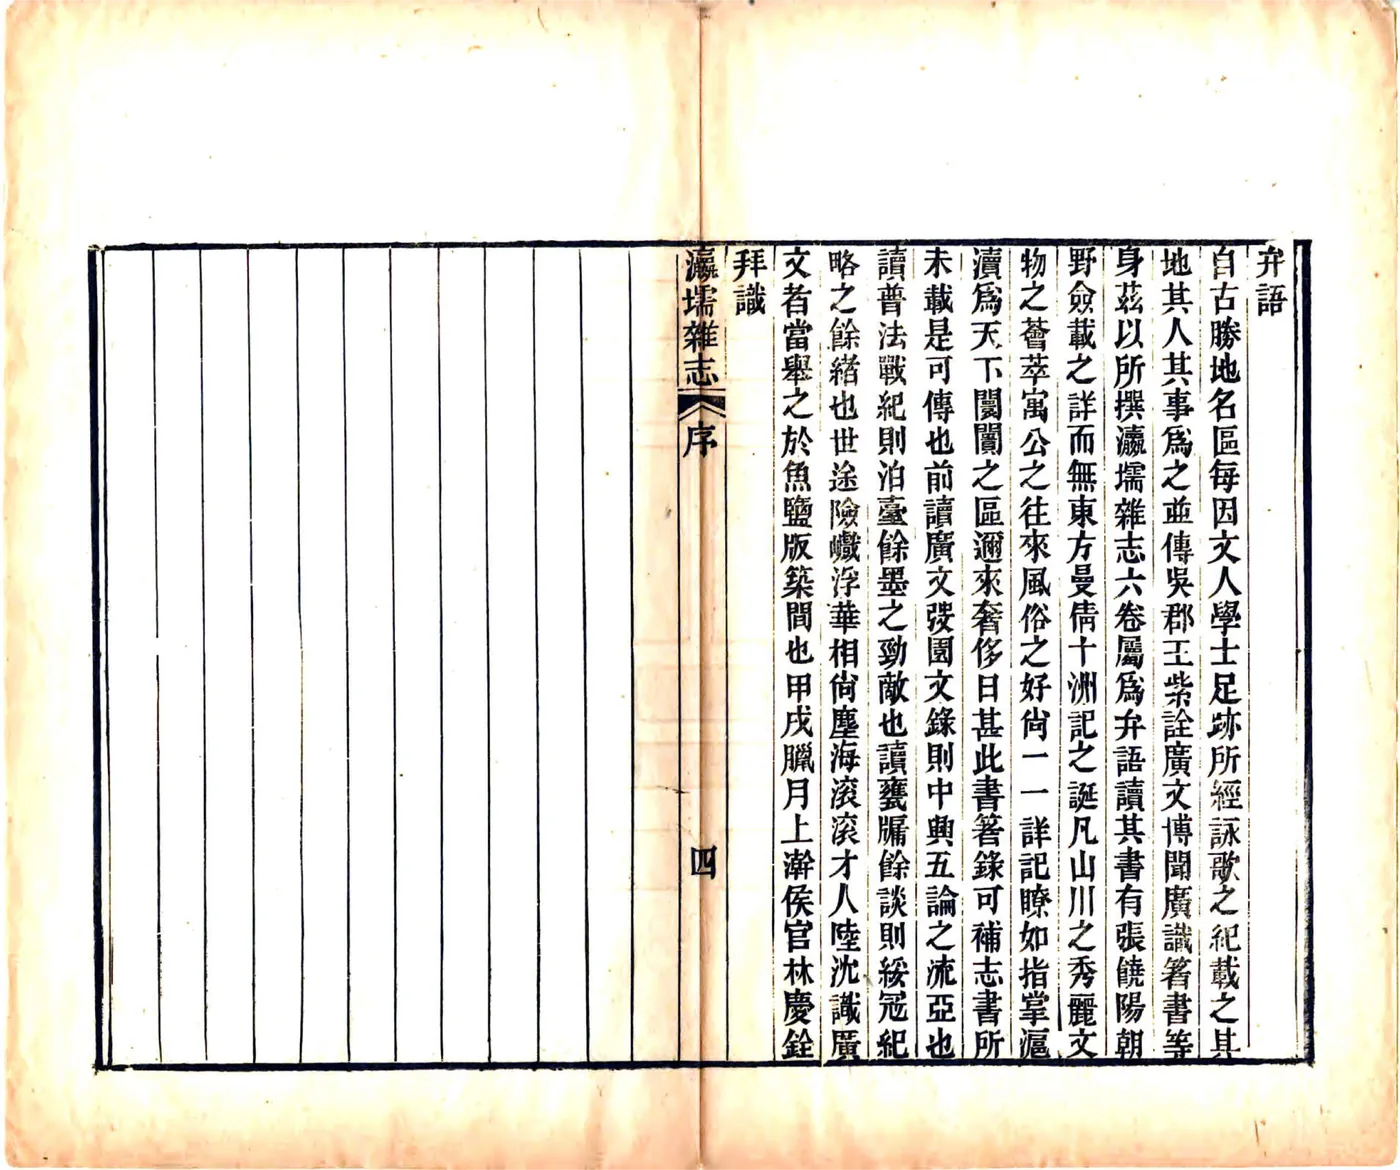 弁語
自古勝地名區每因文人學士足跡所經詠歌之紀載之其
地其人其事爲之並傳吳郡王紫詮廣文博聞廣識箸書等
身茲以所撰瀛壖雜志六卷屬爲弁語讀其書有張饒陽朝
野僉載之詳而無東方曼倩十洲記之誕凡山川之秀麗文
物之薈萃寓公之往來風俗之好尙一一詳記瞭如指掌滬
瀆爲天下闤闠之區邇來奢侈日甚此書箸錄可補志書所
未載是可傳也前讀廣文弢園文錄則中興五論之流亞也
讀普法戰紀則泊臺餘墨之勁敵也讀甕牖餘談則綏冠紀
略之餘緒也世途險巇浮華相尙塵海滚滚才人陸沈識廣
文者當舉之於魚鹽版築間也甲戌臘月上澣侯官林慶銓
拜識
瀛壖雜志
序
四